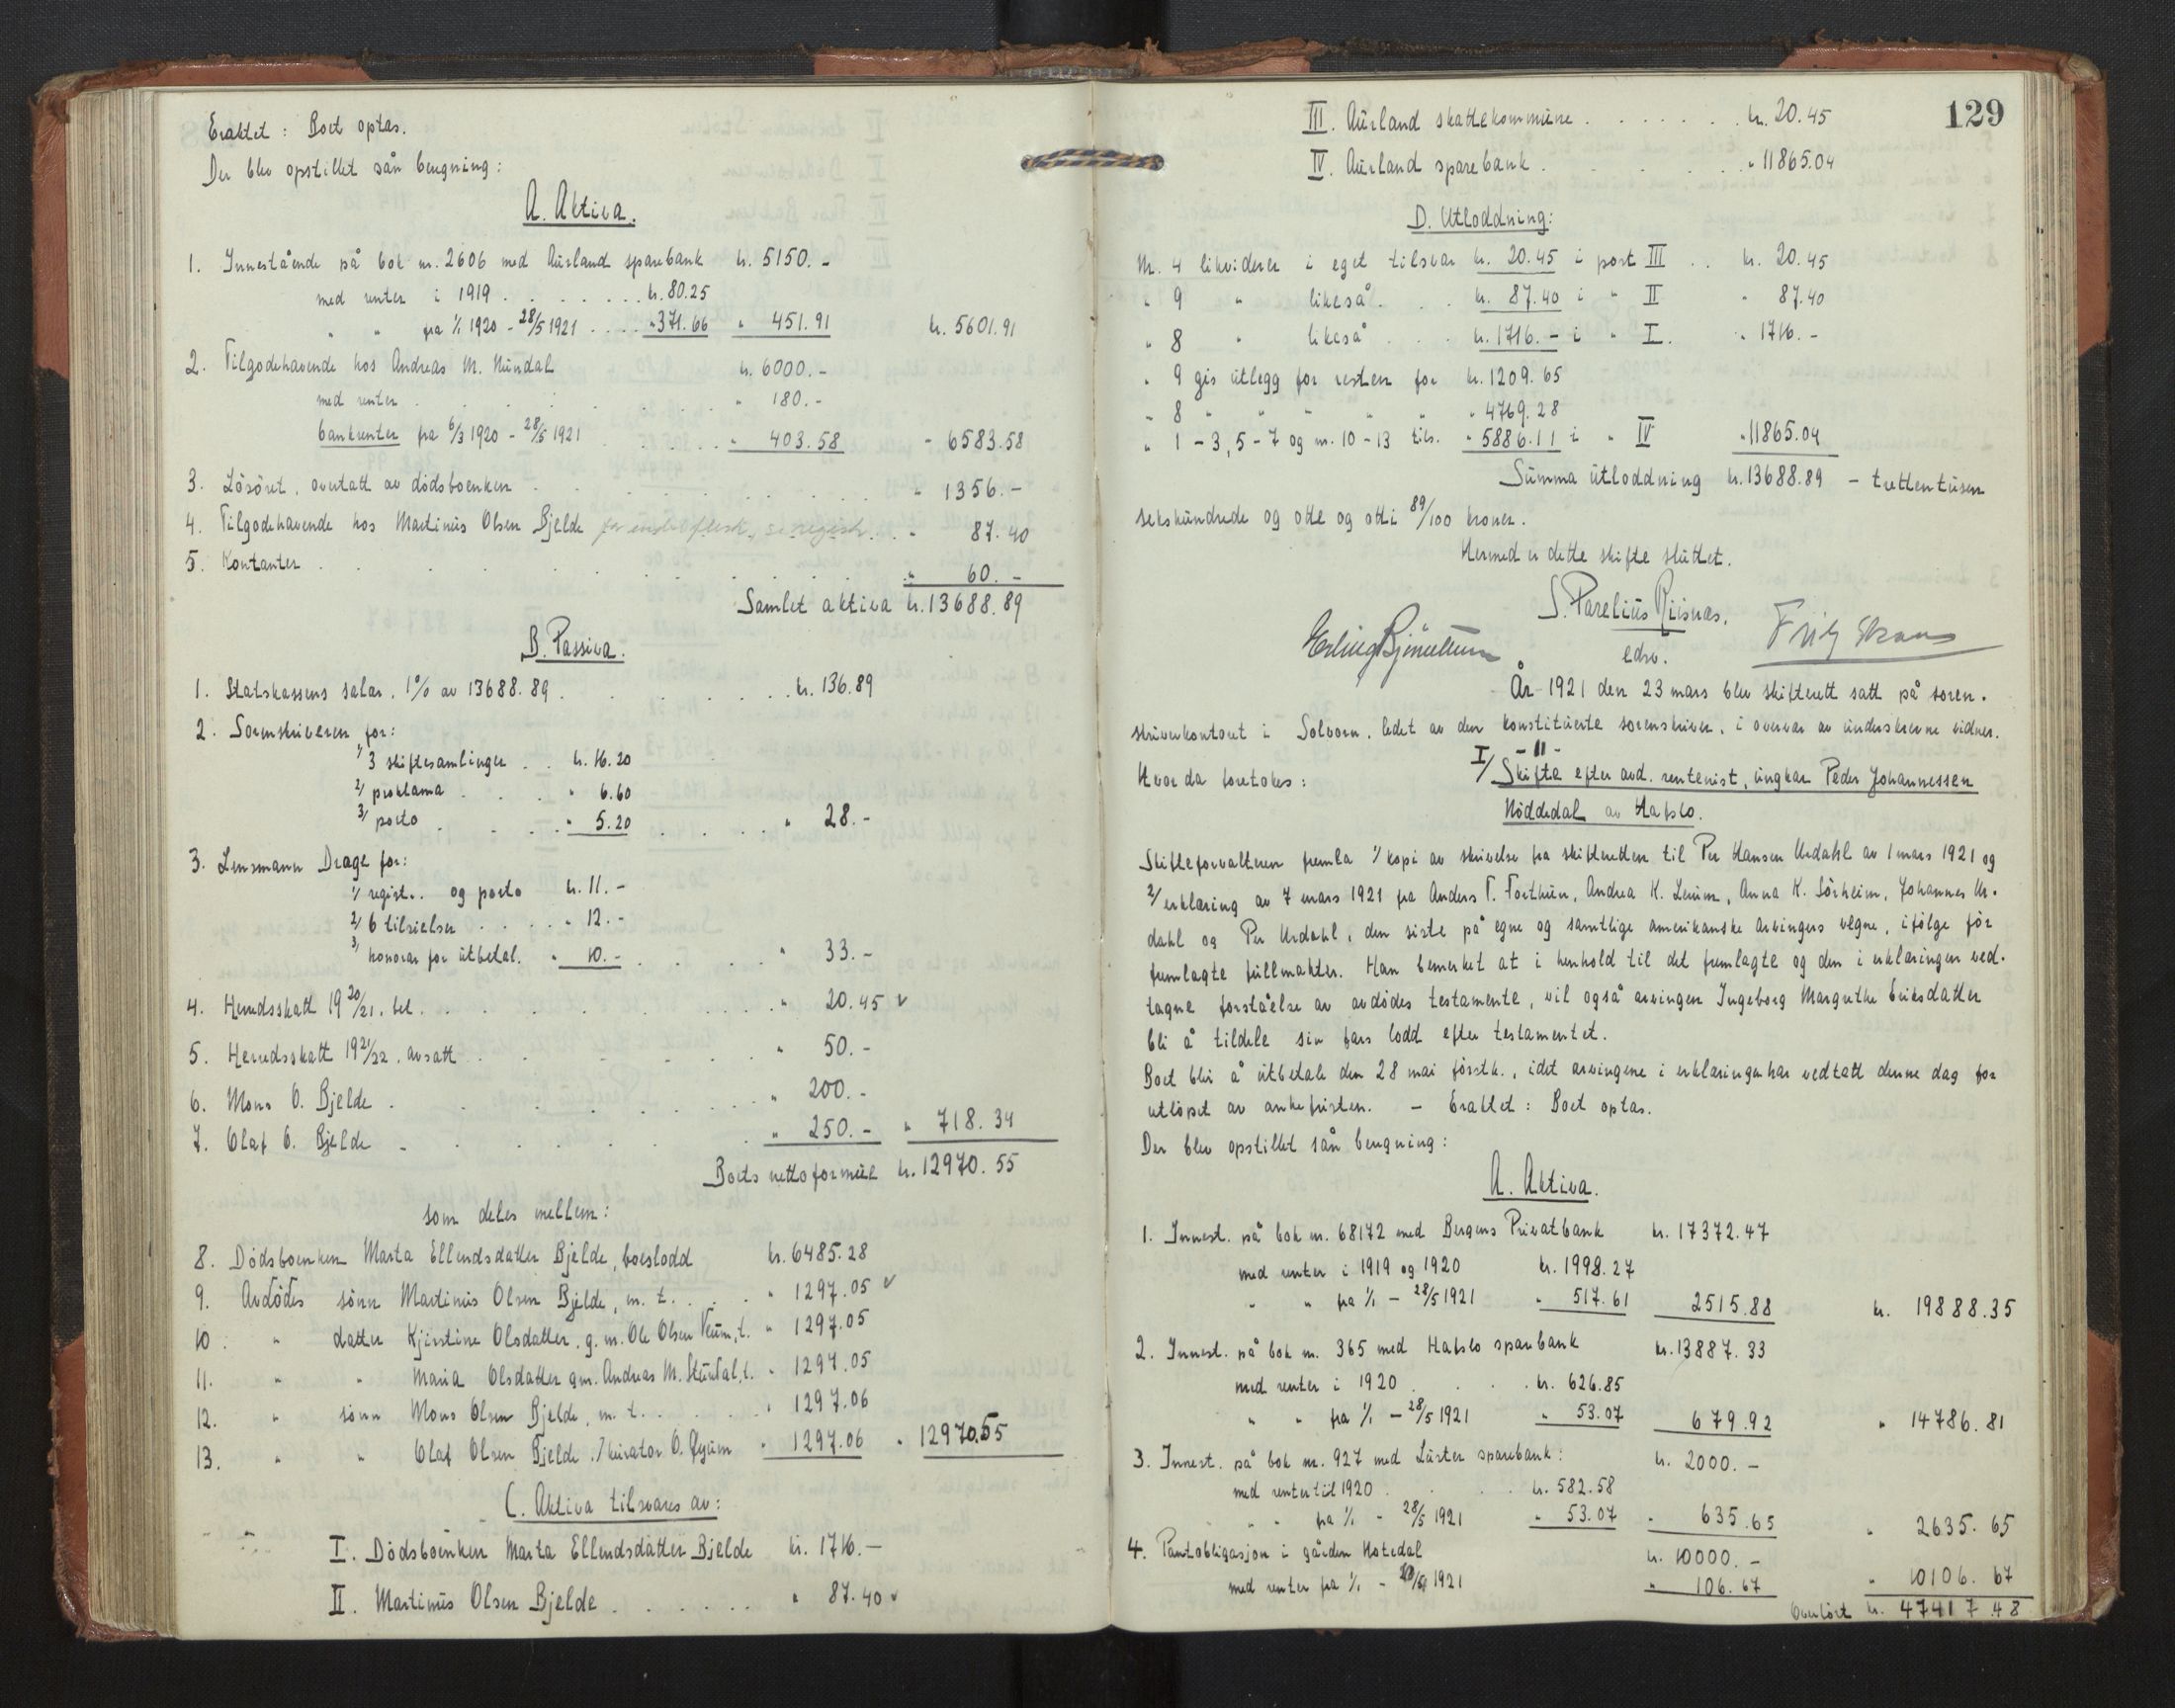 Eraktet: Boet optas.
Der blev opstillet sån beregning:
A. Aktiva.
1. Innestående på bok nr. 2606 med Aurland sparebank kr. 5150.-
med renter i 1919 . . . . . . . kr. 80.25
" " fra 1/1 1920 - 28/5 1921 . . . . " 371.66 " 451.91 kr. 5601.91
2. Tilgodehavende hos Andreas M. kr. 6000.-
med renter . . . . . . . " 180.-
bankrenter fra 6/3 1920 - 28/5 1921 . . . . . " 403.58 " 6583.58
3. Lösöret, overtatt av dödsboenken . . . . . . . " 1356.-
4. Tilgodehavende hos Martinus Olsen Bjelde . . " 87.40
5. Kontanter . . . . . . . . . . " 60.-
Samlet aktiva kr. 13688.89
B. Passiva.
1. Statskassens salar, 1% av 13688.89 . . . . . . . kr. 136.89
2. Sorenskriveren for:
1/ 3 skiftesamlinger . . kr. 16.20
2/ proklama . . . . " 6.60
3/ porto . . . . " 5.20 . . . . . " 28.-
3. Lensmann Drage for:
1/ registr. og porto kr. 11.-
2/ 6 tilsielser . . . . . " 12.-
3/ honorar for utbetal. " 10.- . . . . " 33.-
4. Herredsskatt 19 20/21. bel. . . . . . . . . . " 20.45 v
5. Herredsskatt 19 21/22. avsatt . . . . . . . . " 50.-
6. Mons O. Bjelde . . . . . . . . " 200.-
7. Olaf O. Bjelde . . . . . . . " 250.- " 718.34
Boets nettoformue kr. 12970.55
som deles mellem:
8. Dödsboenken Marta Ellendsdatter Bjelde, boeslodd kr. 6485.28
9. Avdödes sönn Martinus Olsen Bjelde, m. t. . . . " 1297.05 v
10. " datter Kjerstine Olsdatter. g. m. Ole Olsen t. " 1297.05
11. " " Maria Olsdatter gm. Andreas M. t. " 1297.05
12. " sönn Mons Olsen Bjelde, m. t. . . . . . " 1297.06
13. " " Olaf Olsen Bjelde ./ kurator O. " 1297.06 " 12970.55
C. Aktiva tilsvares av:
I. Dödsboenken Marta Ellendsdatter Bjelde kr. 1716.-
II. Martinus Olsen Bjelde . . . . . . " 87.40 v
129
III. Aurland skattekommune . . . . . . . kr. 20.45
IV. Aurland sparebank . . . . . . . " 11865.04
D. Utloddning:
Nr. 4 likviderer i eget tilsvar kr. 20.45 i post III . . kr. 20.45
" 9 " likeså . . . kr. 87.40 i " II " 87.40
" 8 " likeså . . . kr. 1716.- i " I. " 1716.-
" 9 gis utlegg for resten for kr. 1209.65
" 8 " " " " " " 4769.28
" 1-3, 5-7 og nr. 10-13 tils. " 5886.11 i " IV " 11865.04
Summa utloddning kr. 13688.89 - trettentusen
sekshundrede og otte og otti 89/100 kroner.
Hermed er dette skifte sluttet.
S. Parelius Riisnæs.
edsv.
År 1921 den 23 mars blev skifterett satt på soren-
skriverkontoret i Solvorn, ledet av den konstituerte sorenskriver, i overvær av underskrevne vidner.
- " -
Hvor da foretokes: I/ Skifte efter avd. rentenist, ungkar Peder Johannessen
Höddedal av Hafslo.
Skifteforvalteren fremla 1/ kopi av skrivelse fra skifteretten til Per Hansen Urdahl av 1 mars 1921 og
2/ erklæring av 7 mars 1921 fra Anders T. Forthun, Andrea K. Anna K. Sörheim, Johannes Ur-
dahl og Per Urdahl, den siste på egne og samtlige amerikanske arvingers vegne, ifölge för
fremlagte fullmakter. Han bemerket at i henhold til det fremlagte og den i erklæringen ved-
tagne forståelse av avdödes testamente, vil også arvingen Ingeborg Margrethe Eriksdatter
bli å tildele sin fars lodd efter testamentet.
Boet blir å utbetale den 28 mai förstk., idet arvingene i erklæringen har vedtatt denne dag for
utlöpet av ankefristen. - Eraktet: Boet optas.
Der blev opstillet sån beregning:
A. Aktiva.
1. Innest. på bok nr. 68172 med Bergens Privatbank kr. 17372.47
med renter i 1919 og 1920 kr. 1998.27
" " fra 1/1 - 28/5 1921 " 517.61 2515.88 kr. 19888.35
2. Innest. på bok nr. 365 med Hafslo sparebank kr. 13887.33
med renter i 1920 . . . . kr. 626.85
" " fra 1/1 - 28/5 1921 " 53.07 679.92 " 14786.81
3. Innest. på bok nr. 927 med Luster sparebank: kr. 2000.-
med renter til 1920 . . . . kr. 582.58
" " fra 1/1 - 28/5 1921 " 53.07 " 635.65 " 2635.65
4. Pantobligasjon i gården kr. 10000.-
med renter fra 1/1 - 1921 " 106.67 " 10106.67
Overfört kr. 47417.48